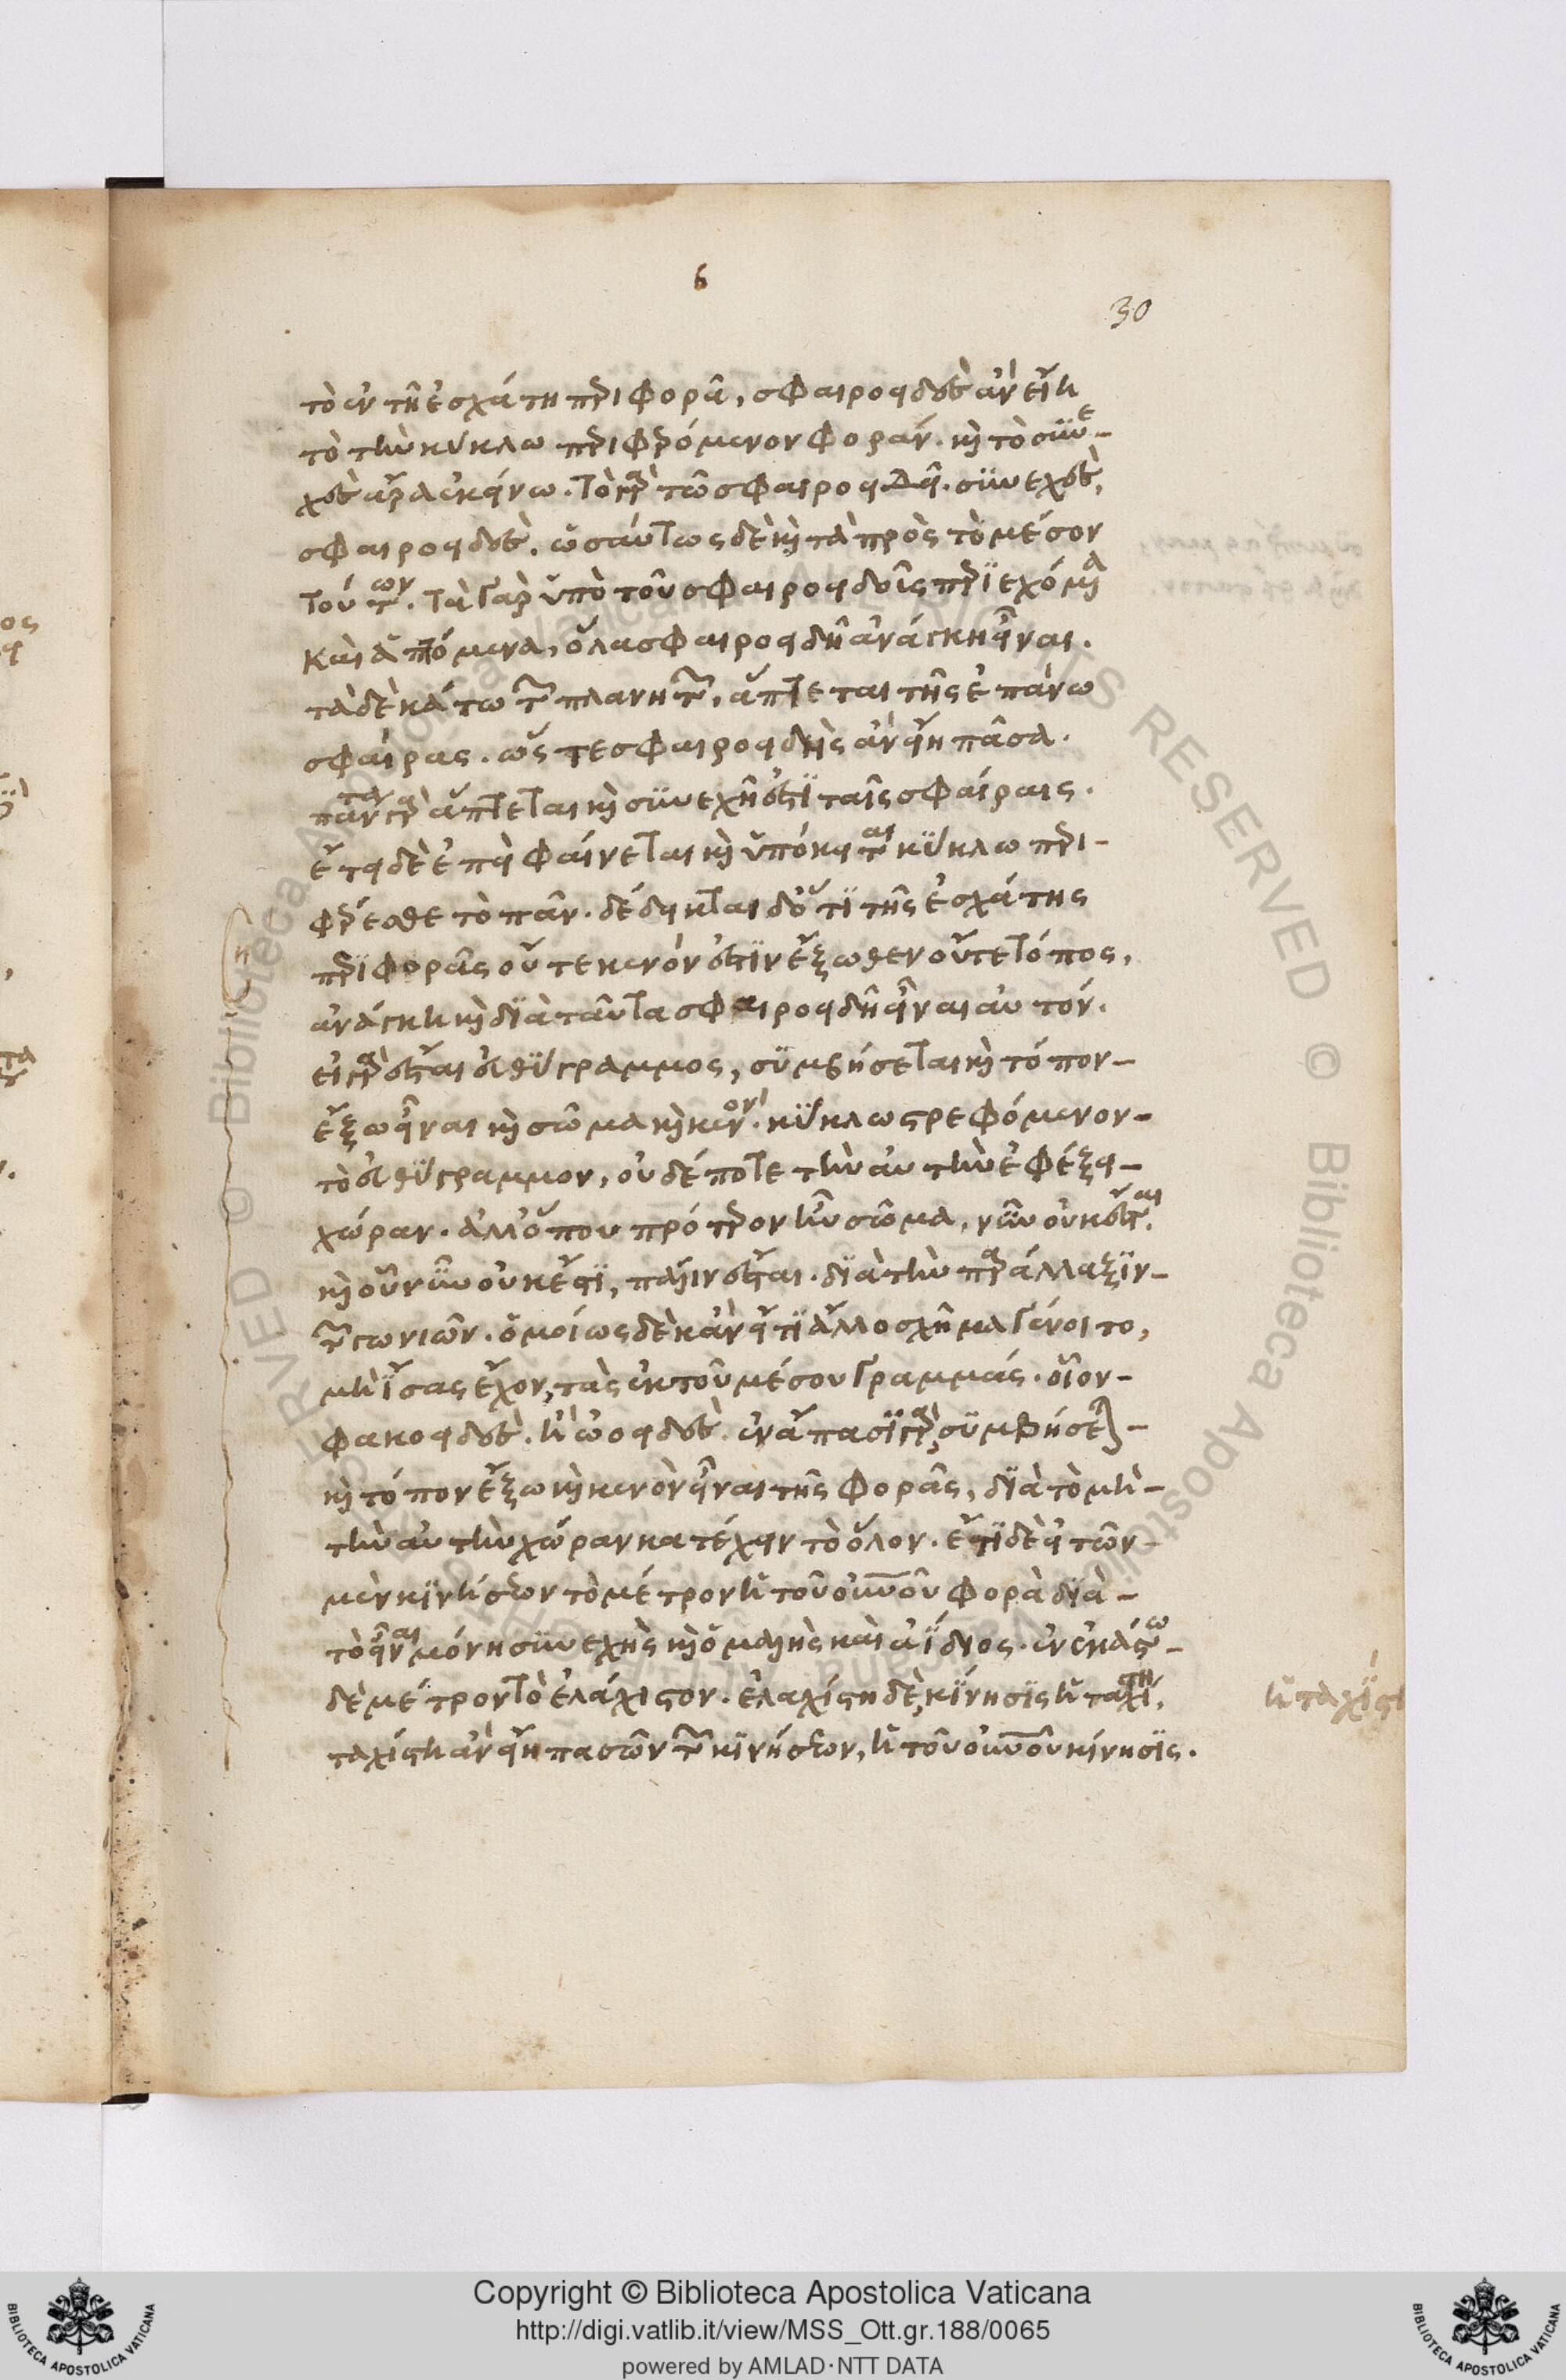 6
30
τὸ ἐν τῆ ἐσχάτη περιφορᾶ, σφαιροειδὲς ἂν εἴη
τὸ τὴν κύκλω περιφερόμενον φοράν. καὶ τὸ συνε-
χὲς ἄρα ἐκείνω. τὸ γὰρ τῶ σφαιροειδεῖ. συνεχὲς,
σφαιροειδὲς. ὡσαύτως δὲ καὶ τὰ πρὸς τὸ μέσον
τούτων. τὰ γὰρ ὑπὸ τοῦ σφαιροειδοῦς περιεχόμενα
καὶ ἁπτόμενα, ὅλα σφαιροειδῆ ἀνάγκη εἶναι.
τὰ δὲ κάτω τῶν πλανητῶν, ἅπτεται τῆς ἐπάνω
σφαίρας. ὥστε σφαιροειδὴς ἂν εἴη πᾶσα.
πάντα γὰρ ἅπτεται καὶ συνεχῆ ἐστὶ ταῖς σφαίραις.
ἔτι δὲ ἐπεὶ φαίνεται καὶ ὑπόκειται κύκλω περι-
φέρεσθαι τὸ πᾶν. δέδεικται δ' ὅτι τῆς ἐσχάτης
περιφορᾶς οὔτε κενόν ἐστιν ἔξωθεν οὔτε τόπος,
ἀνάγκη καὶ διὰ ταῦτα σφαιροειδῆ εἶναι αὐτόν.
εἰ γὰρ ἔσται εὐθύγραμμος, συμβήσεται καὶ τόπον
ἔξω εἶναι καὶ σῶμα καὶ κενόν. κύκλω στρεφόμενον
τὸ εὐθύγραμμον, οὐδέποτε τὴν αὐτὴν ἐφέξει
χώραν. ἀλλ' ὅπου πρότερον ἦν σῶμα, νῦν οὐκ ἔσται.
καὶ οὗ νῦν οὐκ ἔστι, πάλιν ἔσται. διὰ τὴν παράλλαξιν
τῶν γωνιῶν. ὁμοίως δὲ κἂν εἴ τι ἄλλο σχῆμα γένοιτο,
μὴ ἴσας ἔχον, τὰς ἐκ τοῦ μέσου γραμμάς. οἷον
φακοειδὲς. ἢ ὠοειδὲς. ἐν ἅπασι γὰρ, συμβήσεται
καὶ τόπον ἔξω καὶ κενὸν εἶναι τῆς φορᾶς, διὰ τὸ μὴ
τὴν αὐτὴν χώραν κατέχειν τὸ ὅλον. ἔτι δὲ εἰ τῶν
μὲν κινήσεων τὸ μέτρον ἡ τοῦ οὐνοῦ φορὰ διὰ
τὸ εἶναι μόνη συνεχὴς καὶ ὁμαλὴς καὶ ἀΐδιος. ἐν ἑκάστω
δὲ μέτρον τὸ ἐλάχιστον. ἐλαχίστη δὲ, κίνησις ἡ ταχίστη,
ταχίστη ἂν εἴη πασῶν τῶν κινήσεων, ἡ τοῦ οὐνοῦ κίνησις.
ἡ ταχίστη
Copyright © Biblioteca Apostolica Vaticana
http://digi.vatlib.it/view/MSS_Ott.gr.188/0065
powered by AMLAD·NTT DATA